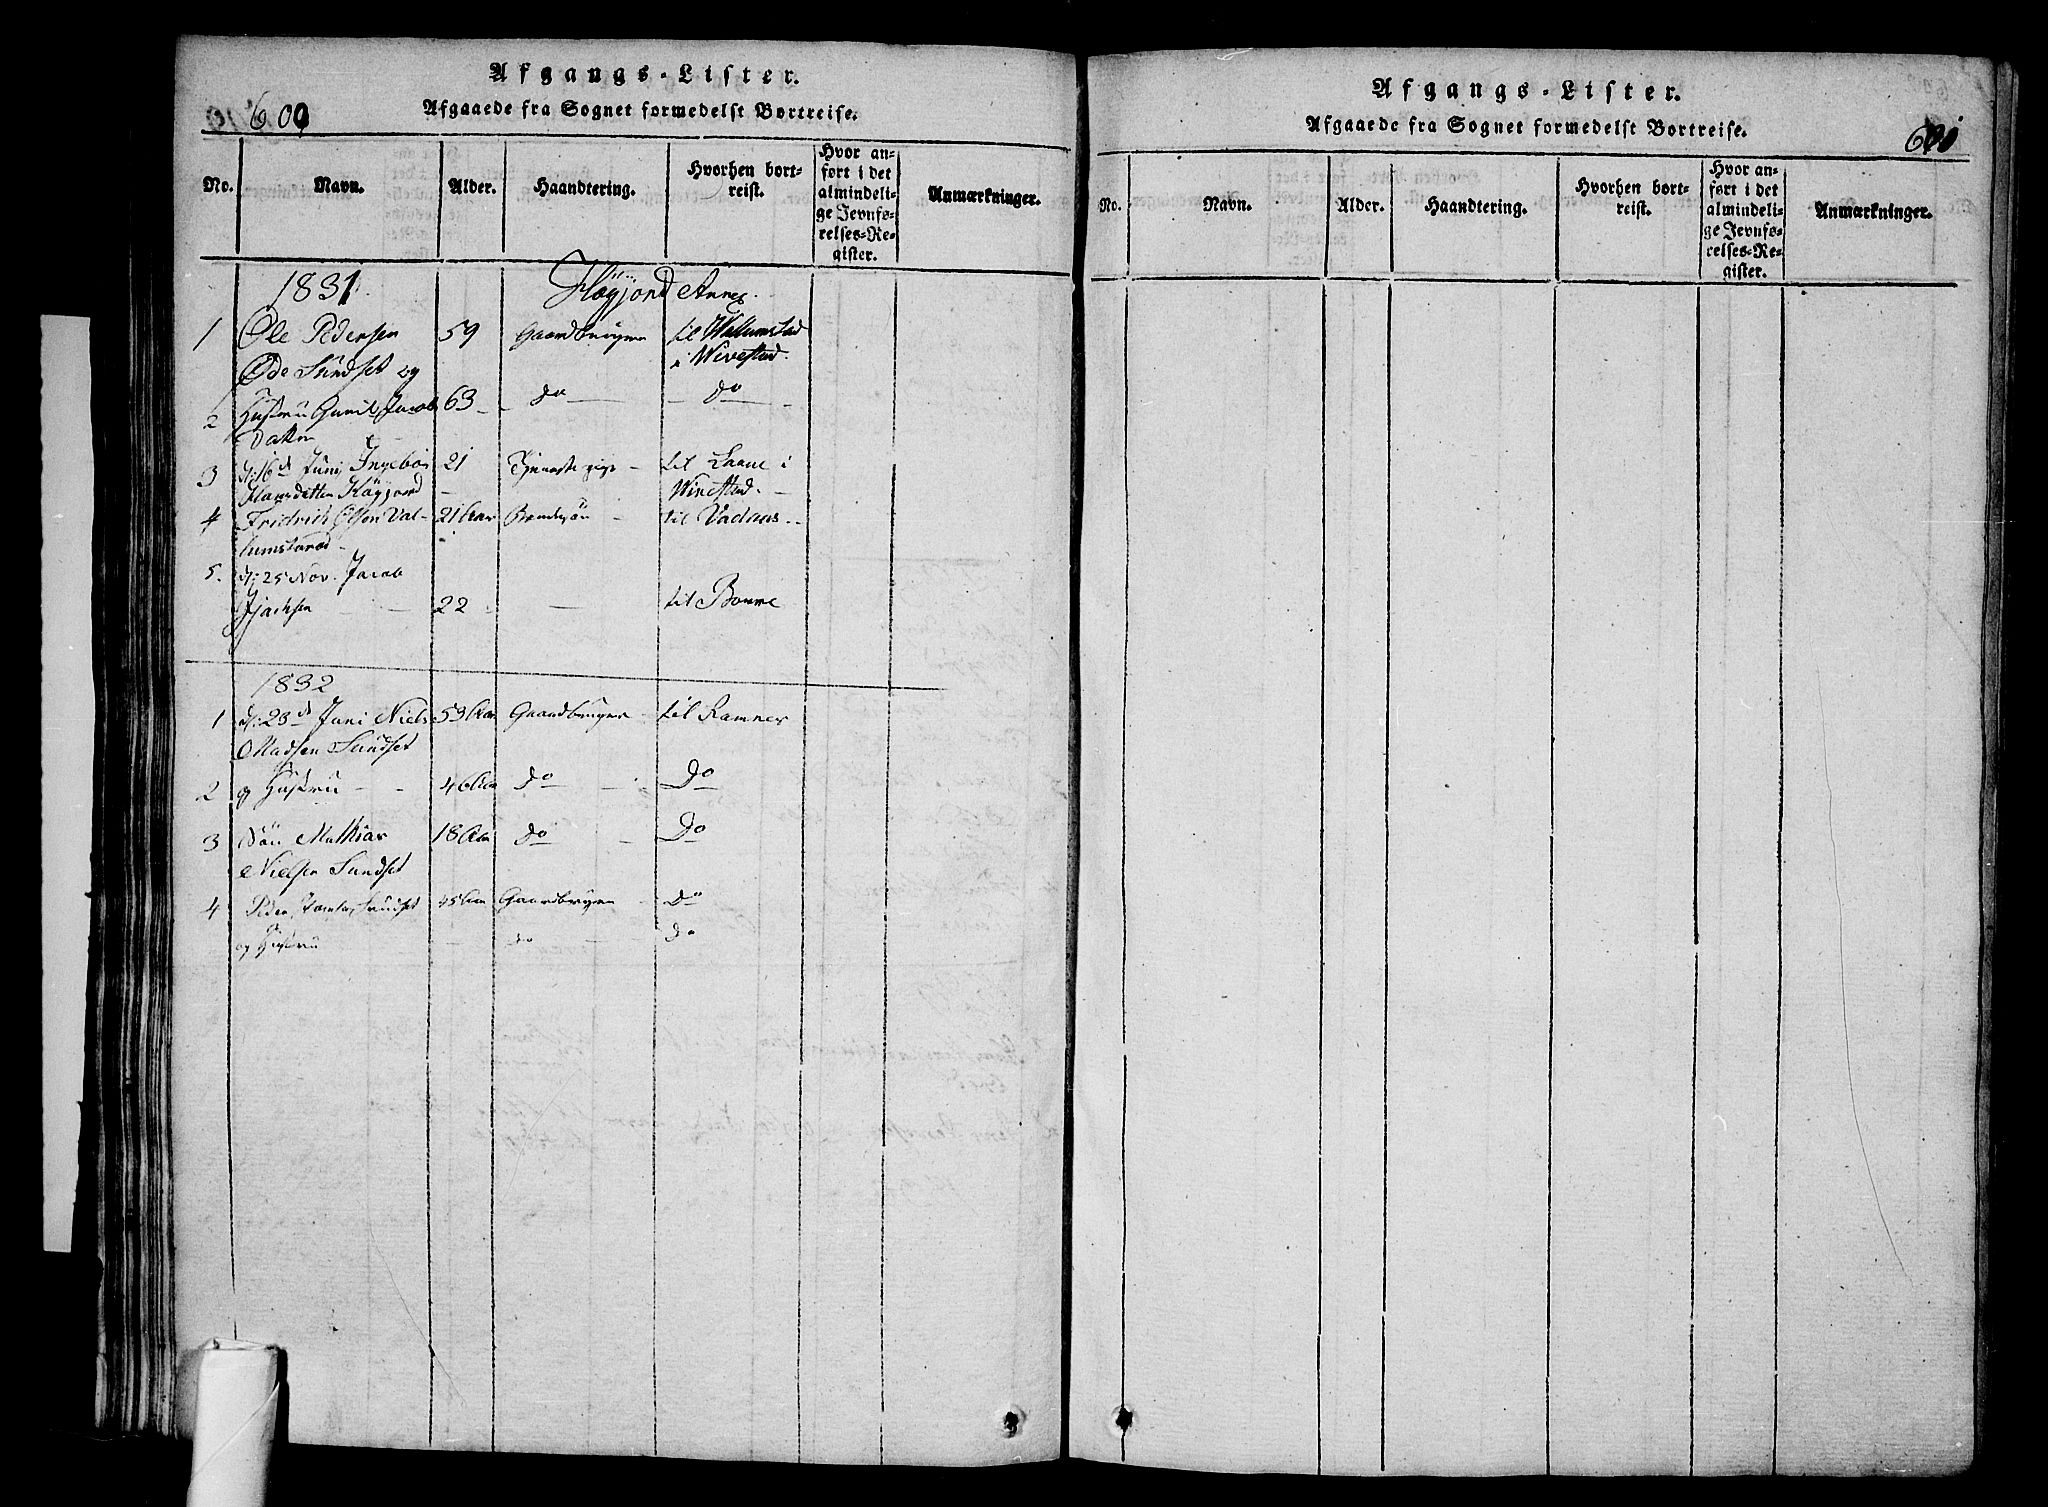 Afgangs-Lister.
600
Afgaaede fra Sognet formedelst Bortreise.
No. Navn. Alder. Haandtering. Hvorhen bortreist. Hvor anført i det almindelige Jevnførelses-Register. Anmærkninger.
1831. Høyjord Annex.
1 Ole Pedersen 59 Gaardbruger til Wallumstad
Øde Sundset og i Wivestad.
2 Hustru Guril Jacobs 63 do do
datter
3 d: 16d Juni Ingebor 21 Tjenestepige til Laane i
Hansdatter Høyjord Wivestad.
4 Fridrich Olsen Val- 21 Aar Bondesøn til Vadaas
lumstarød
5. d: 25 Nov. Jacob
22 til Borrre
1832
1 d: 23d Juni Niels 53 Aar Gaardbruger til Ramnes
Madsen Sundset
2 og Hustru 46 Aar do Do
3 Søn Mathias 18 Aar do Do
Nielsen Sundset
4 Peder Sundset 45 Aar Gaardbruger Do
og Hustru do do
Afgangs-Lister.
Afgaaede fra Sognet formedelst Bortreise.
601
No. Navn. Alder. Haandtering. Hvorhen bortreist. Hvor anført i det almindelige Jevnførelses-Register. Anmærkninger.